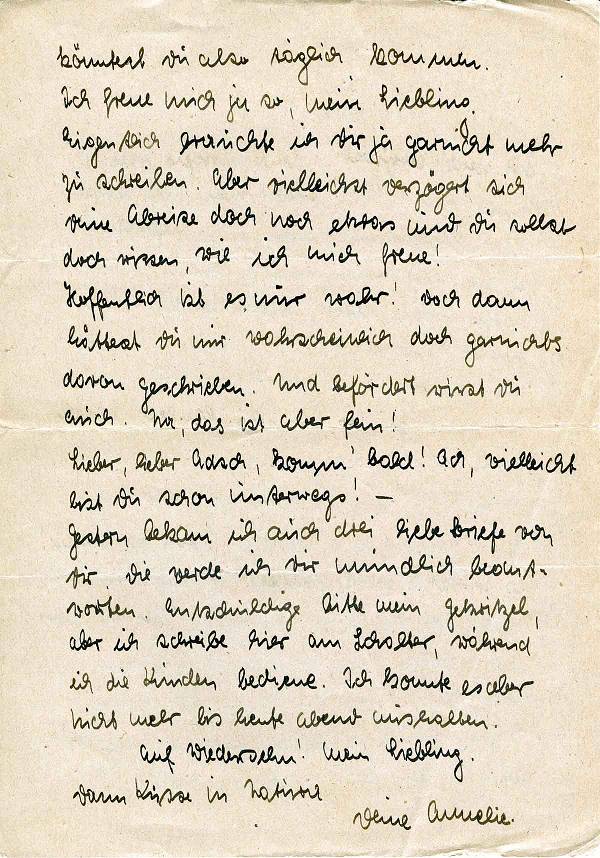 könntest du also täglich kommen.
Ich freue mich ja so, mein Liebling.
Eigentlich brauchte ich dir ja garnicht mehr
zu schreiben. Aber vielleicht verzögert sich
deine Abreise doch noch etwas und du sollst
doch wissen, wie ich mich freue!
Hoffentlich ist es nur wahr! Doch dann
hättest du mir wahrscheinlich doch garnichts
davon geschrieben. Und befördert wirst du
auch. Na, das ist aber fein!
Lieber, lieber Adsch, komm' bald! Ach, vielleicht
bist du schon unterwegs! —
Gestern bekam ich auch drei liebe Briefe von
dir, die werde ich dir mündlich beant-
worten. Entschuldige bitte mein Gekritzel,
aber ich schreibe hier am Schalter, während
ich die Kunden bediene. Ich konnte es aber
nicht mehr bis heute abend aushalten.
Auf Wiedersehn! Mein Liebling.
Dann Küsse in Natura
Deine Annelie.